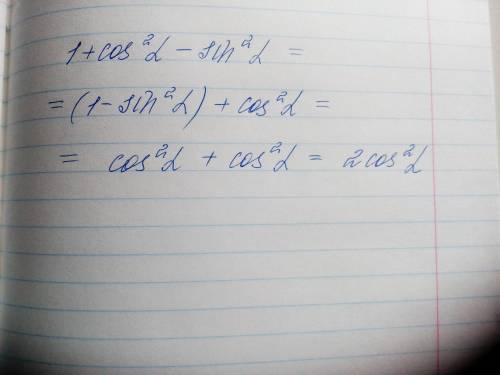 1 + cos²α - sin²α =
= (1 - sin²α) + cos²α =
= cos²α + cos²α = 2cos²α